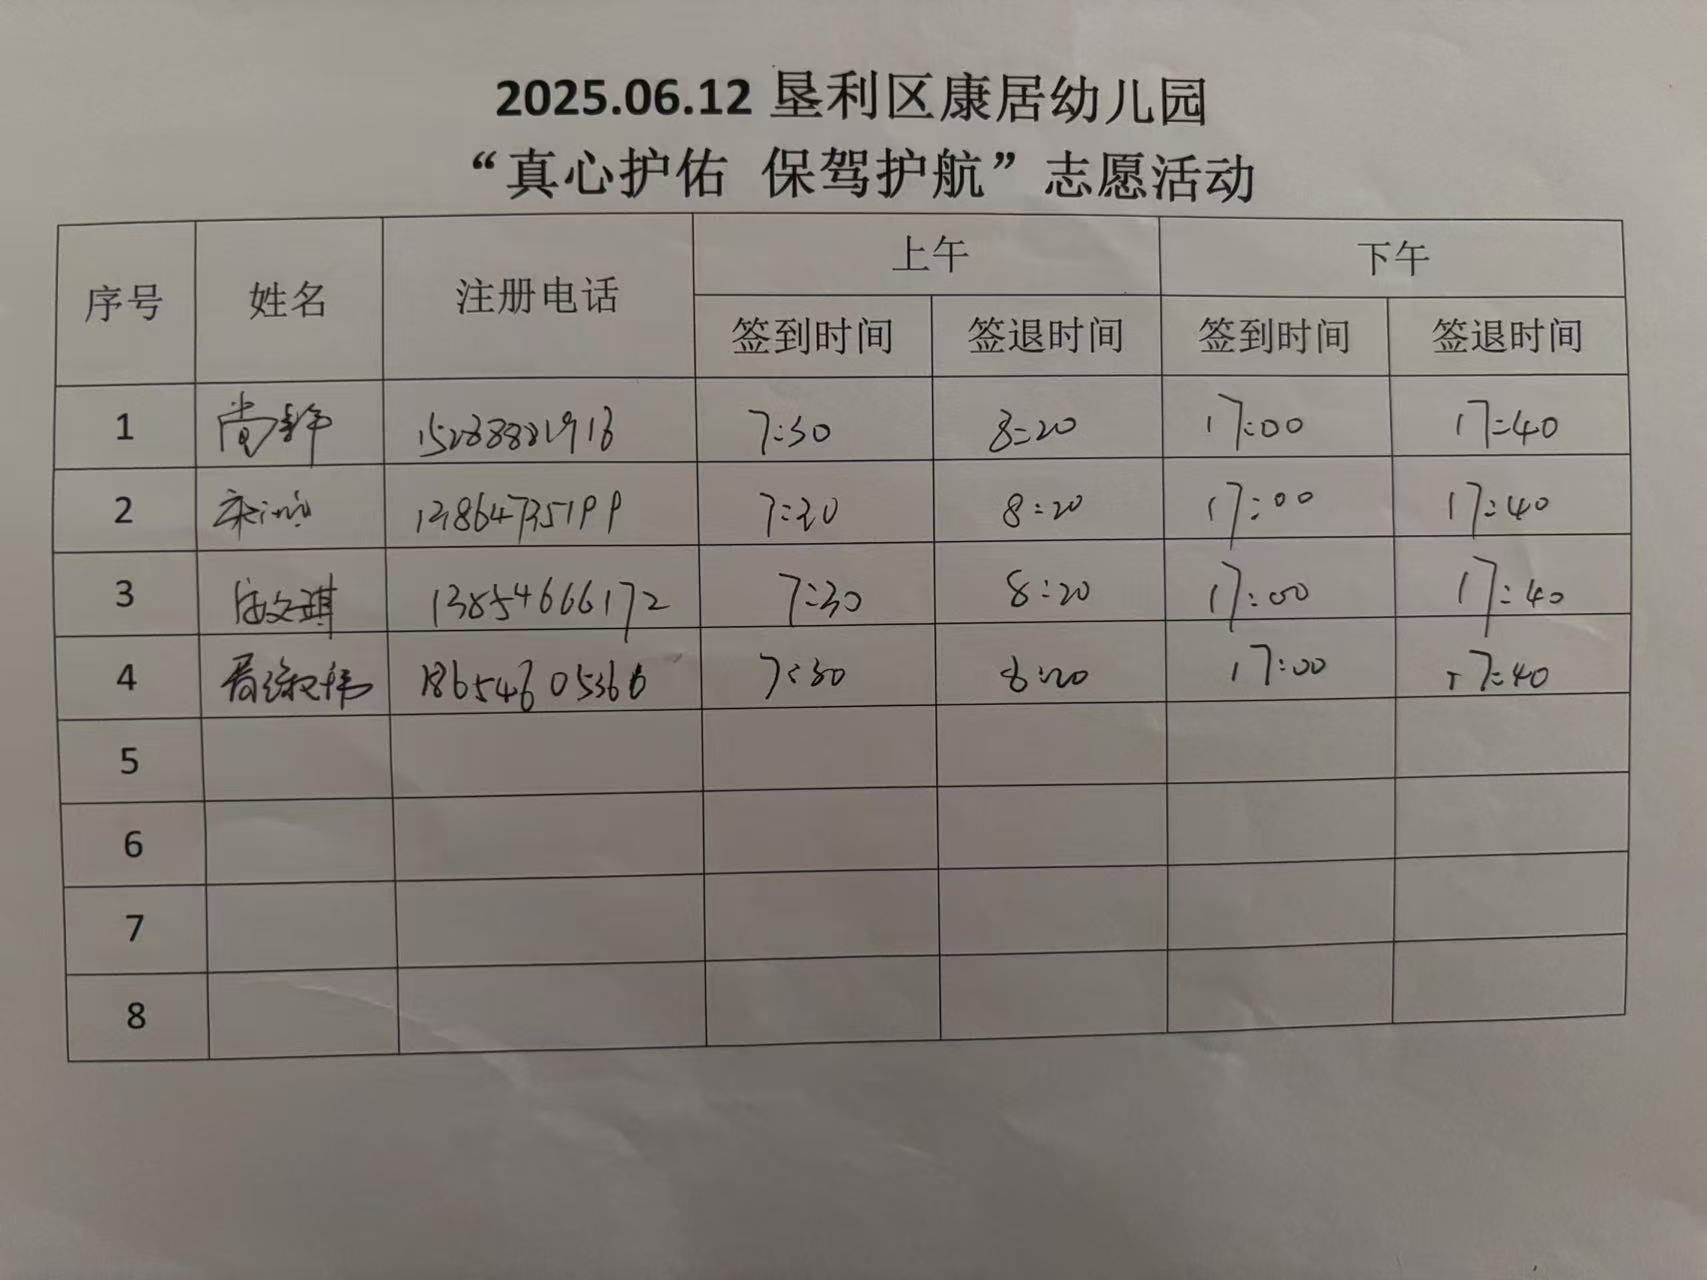 2025.06.12 垦利区康居幼儿园
“真心护佑 保驾护航”志愿活动
序号 姓名 注册电话 上午 下午
签到时间 签退时间 签到时间 签退时间
1 尚静 7:30 8:20 17:00 17:40
2 13864735199 7:30 8:20 17:00 17:40
3 文琪 13854666172 7:30 8:20 17:00 17:40
4 18654605366 7:30 8:20 17:00 17:40
5
6
7
8